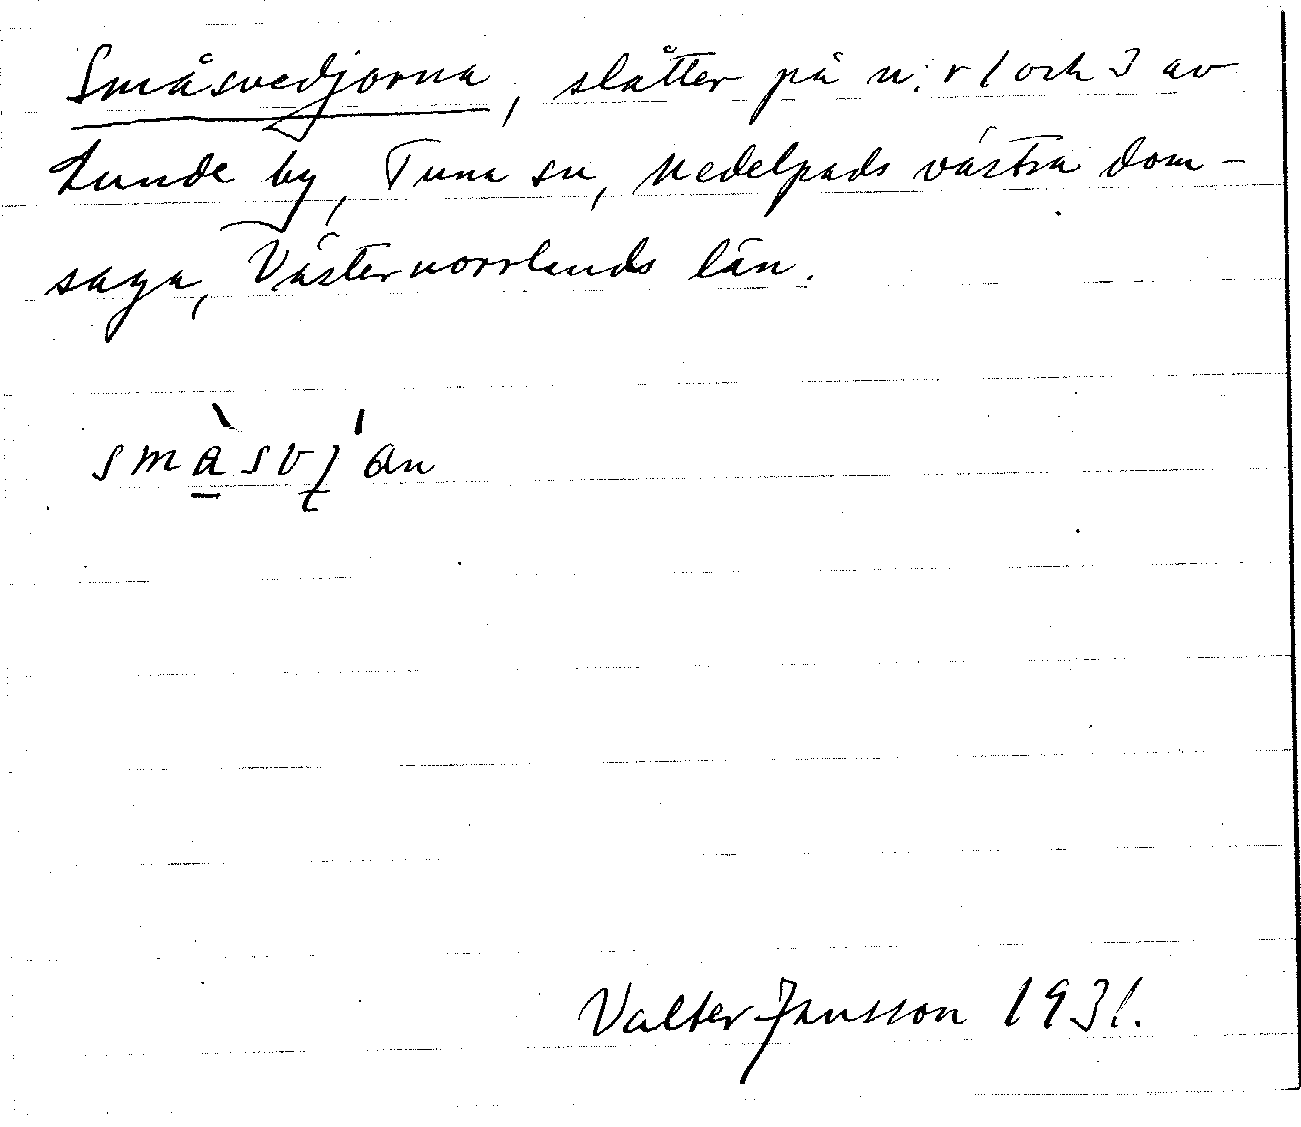 Småsvedjorna, slåtter på n:r 1 och 3 av
Lunde by, Tuna sn, Medelpads västra dom-
saga, Västernorrlands län.
Valter Jansson 1931.